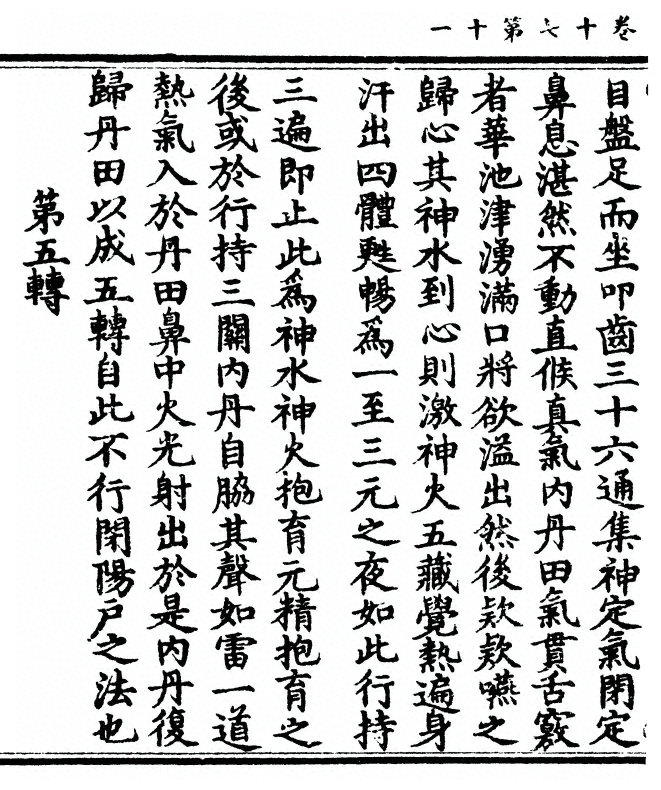 卷十七第十一
目盤足而坐叩齒三十六通集神定氣閉定
鼻息湛然不動直候真氣内丹田氣貫舌竅
者華池津湧滿口將欲溢出然後欵欵嚥之
歸心其神水到心則激神火五藏覺熱遍身
汗出四體甦暢爲一至三元之夜如此行持
三遍即止此爲神水神火抱育元精抱育之
後或於行持三關内丹自脇其聲如雷一道
熱氣入於丹田鼻中火光射出於是内丹復
歸丹田以成五轉自此不行閉陽戸之法也
第五轉